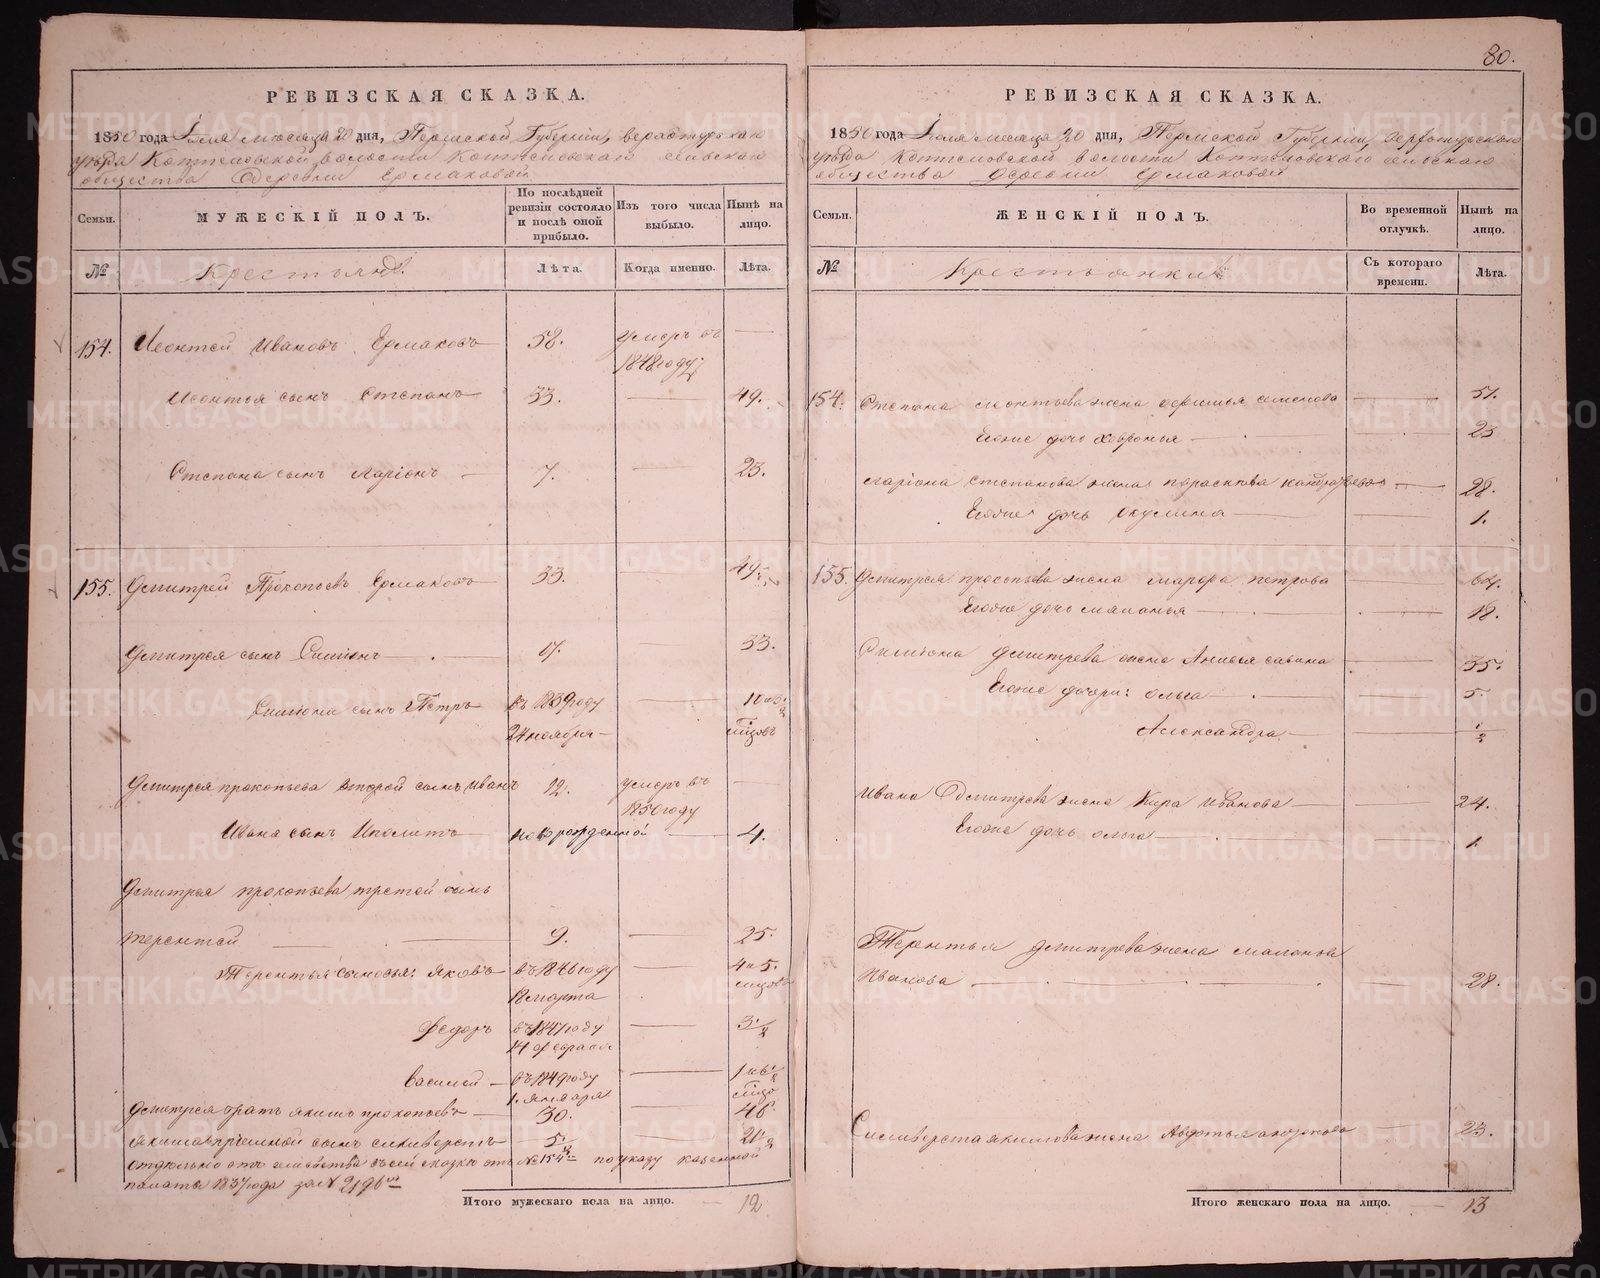 РЕВИЗСКАЯ СКАЗКА.
1850 года Июля месяца 20 дня, Пермской Губернии, верхотурскаго
уезда Коптеловской волости Коптеловскаго сельскаго
общества Деревни Ермаковой
Семьи.
МУЖЕСКІЙ ПОЛЪ.
По послѣдней ревизіи состояло и послѣ оной прибыло.
Изъ того числа выбыло.
Нынѣ на лицо.
№
Крестьянъ.
Лѣта.
Когда именно.
Лѣта.
154. Леонтей Ивановъ Ермаковъ 58. умеръ въ 1848 году —
Леонтья сынъ Степанъ 33. — 49.
Степана сынъ Ларіонъ — 7. — 23.
155. Дмитрей Прокопьевъ Ермаковъ 33. 49.
Дмитрея сынъ Симіонъ 17. — 33.
Симіона сынъ Петръ въ 1839 году 24 ноября — 10
Дмитрея прокопьева второй сынъ Иванъ 12. умеръ въ 1850 году —
Ивана сынъ Иполитъ новорожденной — 4.
Дмитрея прокопьева третей сынъ
терентей 9. — 25.
Терентья сыновья: Яковъ въ 1846 году 18 марта — 4 и 5.
Федоръ въ 1847 году 14 февраля — 3 1/2
Василей — въ 1849 году 1. января — 1
Дмитрея братъ якимъ прокопьевъ — 30. — 46.
якима приемной сынъ селиверстъ 5 1/2 — 21 1/2
отдельно отъ семейства въ сей сказке отъ № 154 по указу казенной
палаты 1837 года за № 2196
Итого мужескаго пола на лицо. — 12
80.
РЕВИЗСКАЯ СКАЗКА.
1850 года Июля месяца 20 дня, Пермской Губерніи, верхотурскаго
уезда Коптеловской волости Коптеловскаго сельскаго
общества Деревни Ермаковой
Семьи.
ЖЕНСКІЙ ПОЛЪ.
Во временной отлучкѣ.
Нынѣ на лицо.
№
Крестьянки
Съ котораго времени.
Лѣта.
154. Степана леонтьева жена Семенова — 51.
Егоже дочь Хавронья — 23
Ларіона степанова жена парасковья — 28.
Егоже дочь Окулина — 1.
155. Дмитрея прокопьева жена марфа петрова 64.
Егоже дочь маланья — 18.
Симіона Дмитрева жена Анисья савина — 35.
Егоже дочери: ольга — 5
Александра — 1/2
Ивана Дмитрева жена Кира Иванова — 24.
Егоже дочь ольга — 1.
Терентья дмитрева жена маланья
Иванова — 28.
Селиверста якимова жена Авдотья — 23.
Итого женскаго пола на лицо. — 13
METRIKI.GASO-URAL.RU